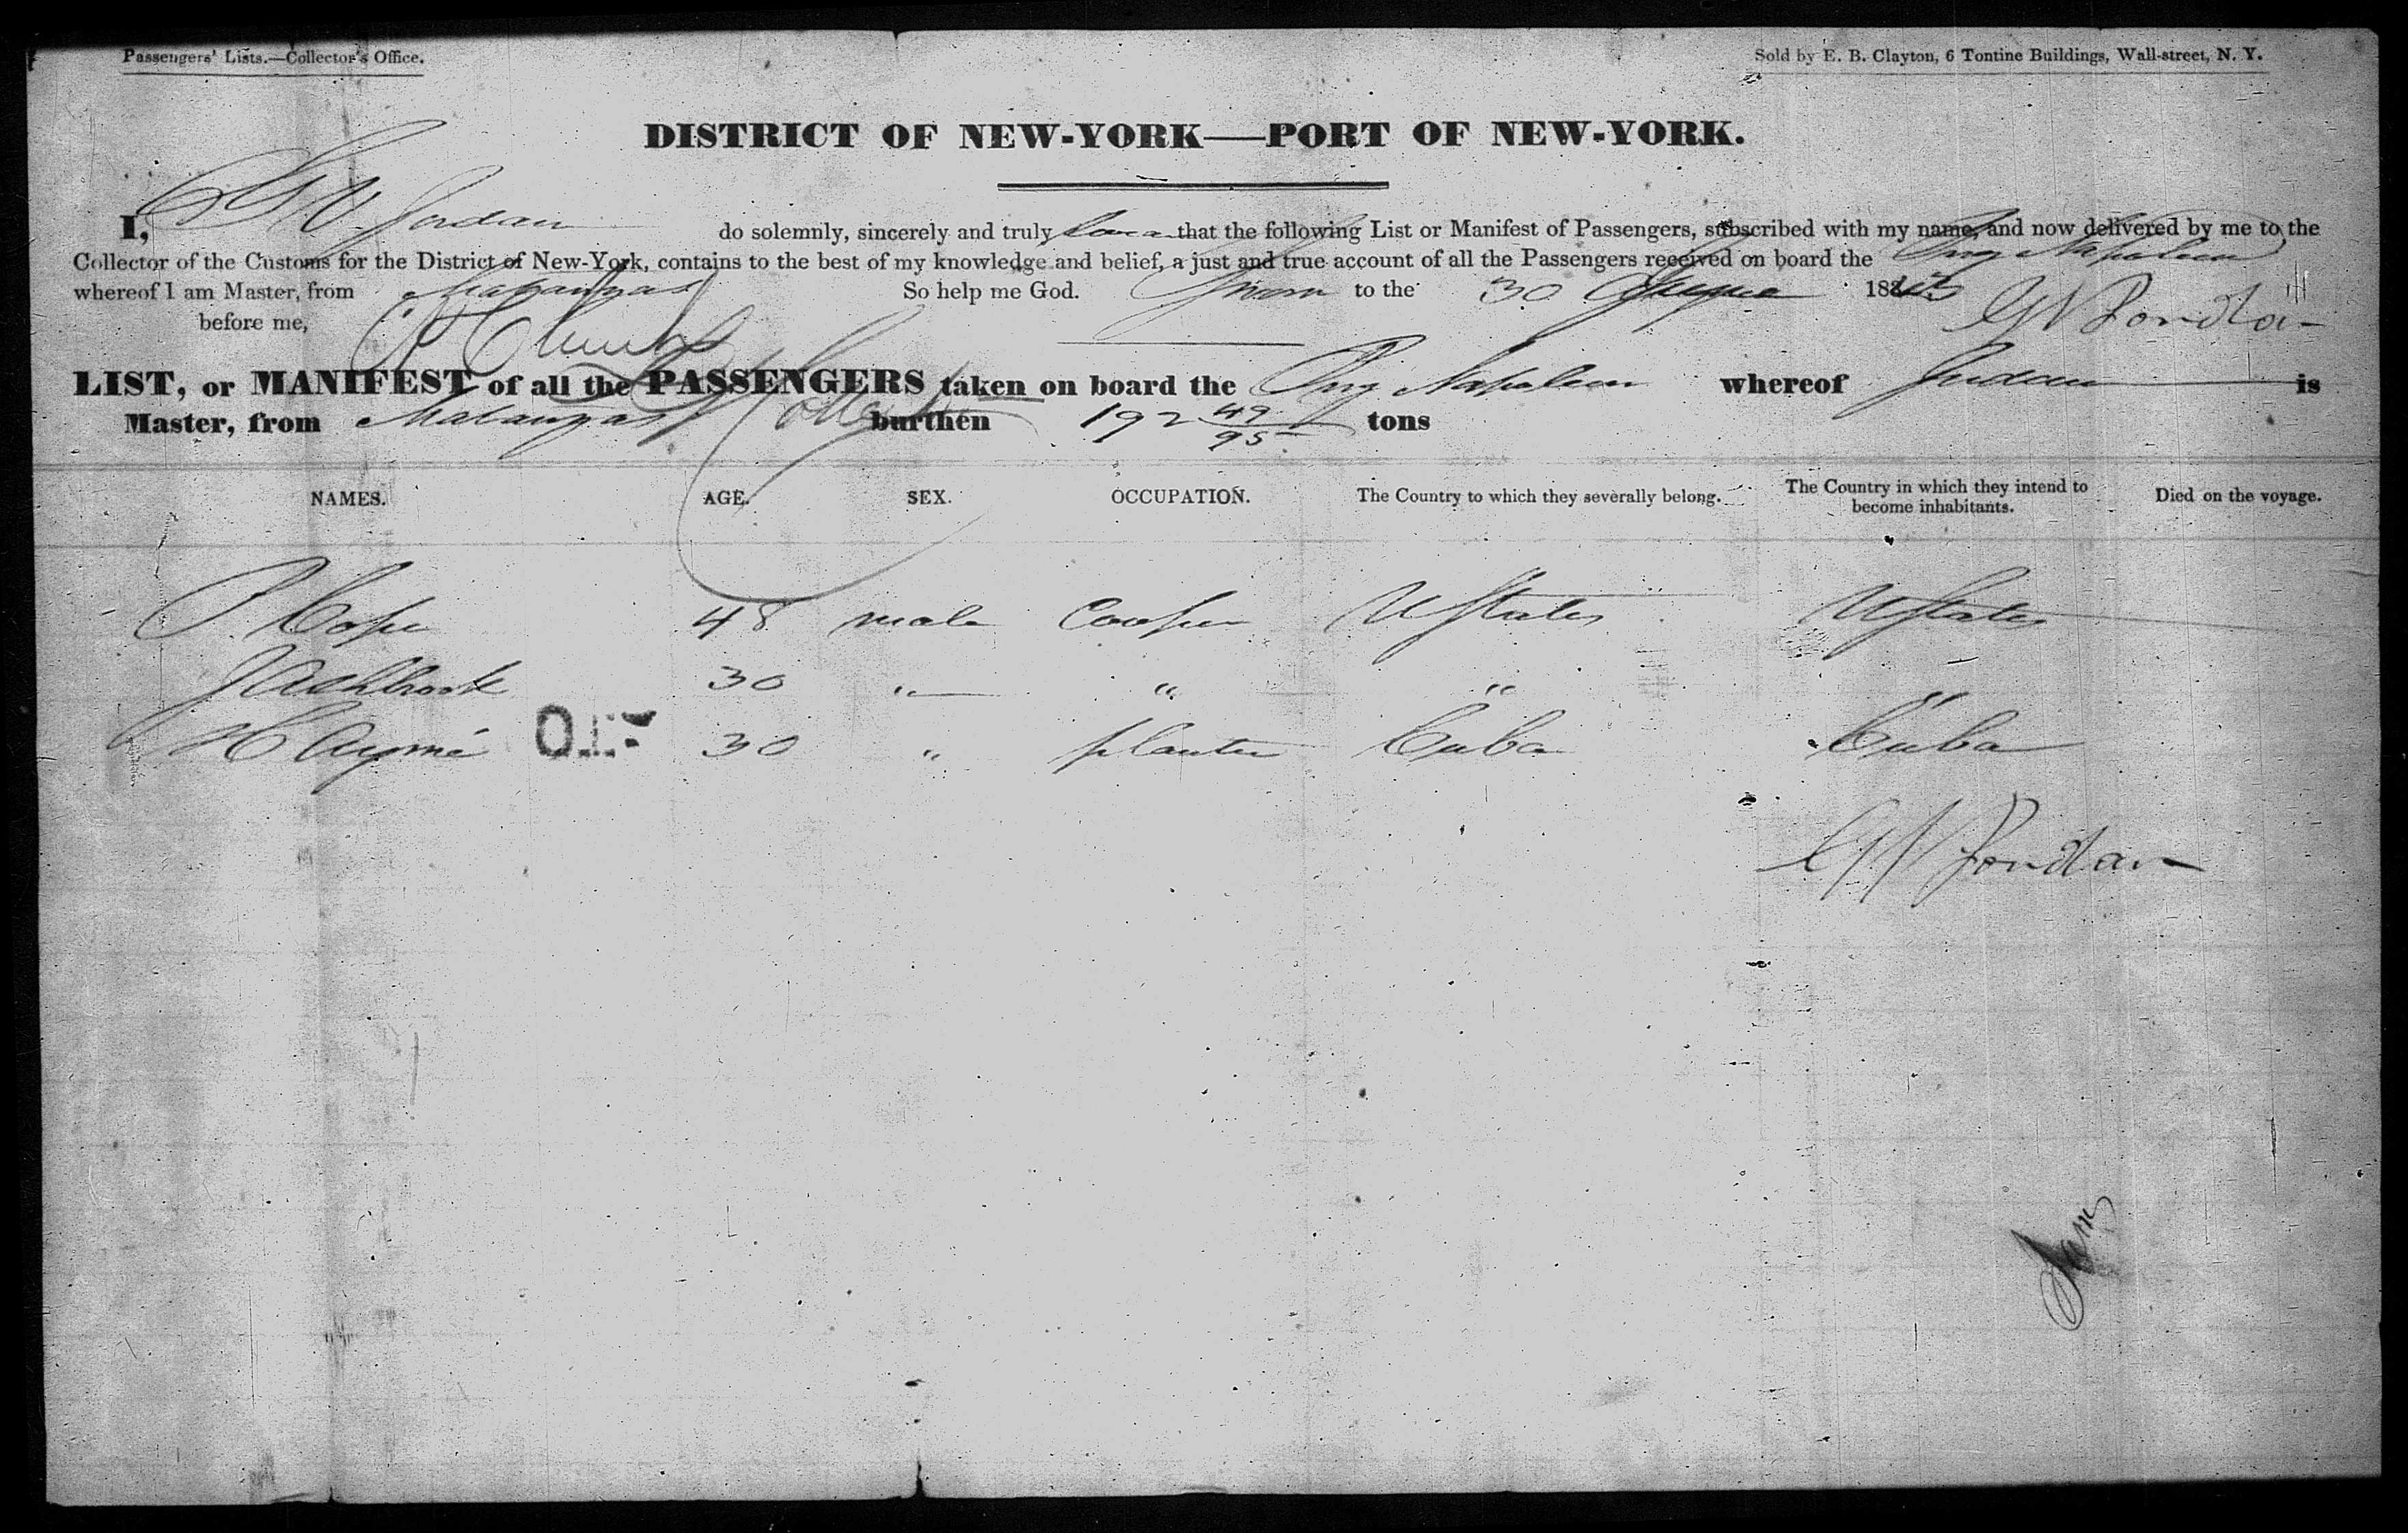 Passengers' Lists.—Collector's Office.
Sold by E. B. Clayton, 6 Tontine Buildings, Wall-street, N. Y.
DISTRICT OF NEW-YORK—PORT OF NEW-YORK.
I, G W Jordan do solemnly, sincerely and truly swear that the following List or Manifest of Passengers, subscribed with my name, and now delivered by me to the
Collector of the Customs for the District of New-York, contains to the best of my knowledge and belief, a just and true account of all the Passengers received on board the Brig Napoleon
whereof I am Master, from Matanzas So help me God. Sworn to the 30 18
before me, G W Jordan
LIST, or MANIFEST of all the PASSENGERS taken on board the Brig Napoleon whereof Jordan is
Master, from Matanzas burthen 192 49/95 tons
NAMES. AGE. SEX. OCCUPATION. The Country to which they severally belong. The Country in which they intend to become inhabitants. Died on the voyage.
P. Cope 48 male Cooper U States U States
J Ashbrook 30 " " " "
H C Aymé 30 " planter Cuba Cuba
G W Jordan